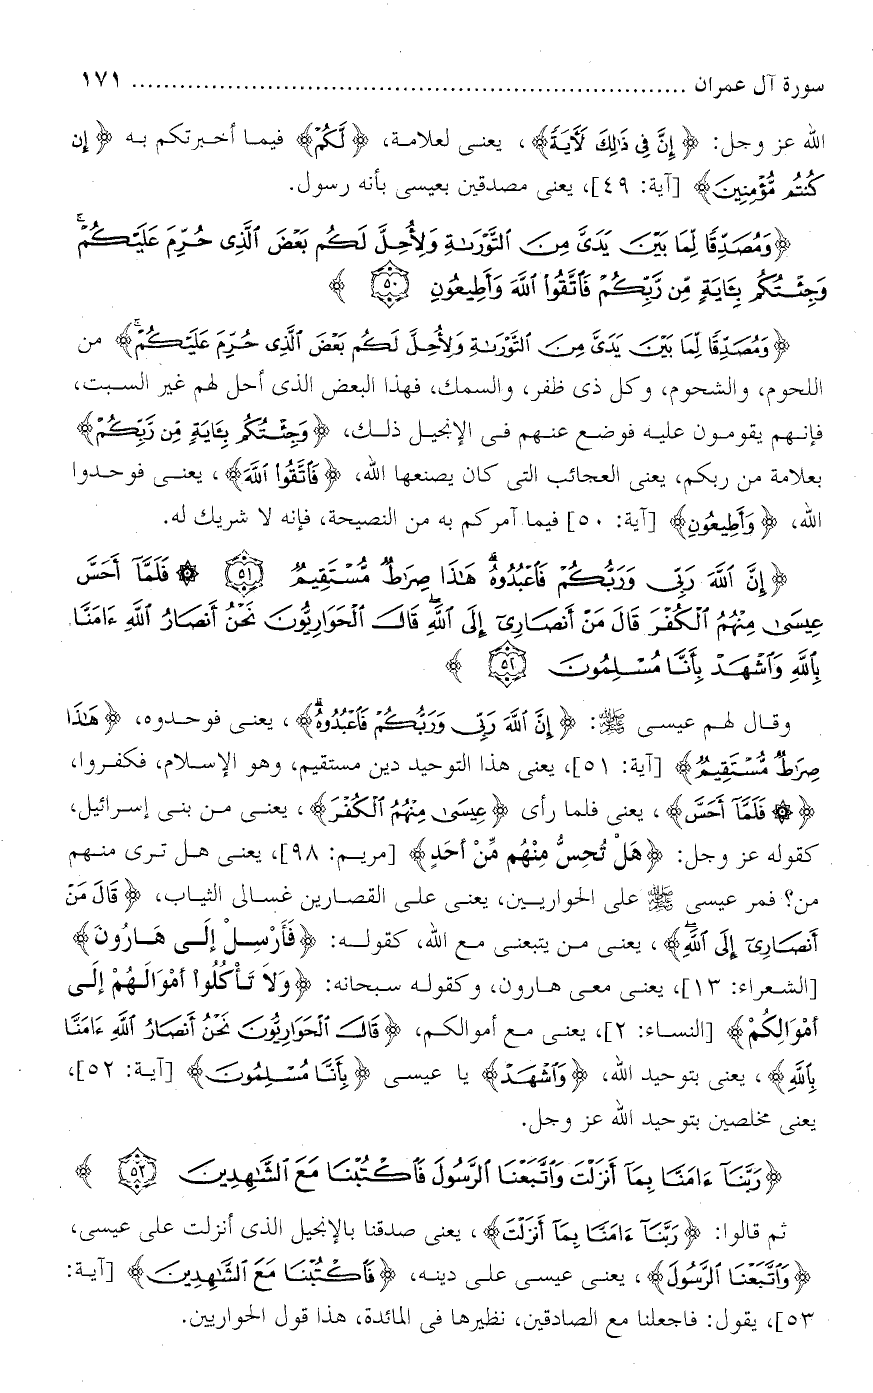 سورة آل عمران ...................................................................... ١٧١
الله عز وجل: ﴿إِنَّ فِي ذَٰلِكَ لَآيَةً﴾، يعنى لعلامة، ﴿لَّكُمْ﴾ فيما أخبرتكم به ﴿إِن
كُنتُم مُّؤْمِنِينَ﴾ [آية: ٤٩]، يعنى مصدقين بعيسى بأنه رسول.
﴿وَمُصَدِّقًا لِّمَا بَيْنَ يَدَيَّ مِنَ التَّوْرَىٰةِ وَلِأُحِلَّ لَكُم بَعْضَ الَّذِى حُرِّمَ عَلَيْكُمْ ۚ
وَجِئْتُكُم بِـَٔايَةٍ مِّن رَّبِّكُمْ فَاتَّقُوا اللَّهَ وَأَطِيعُونِ ٥٠﴾
﴿وَمُصَدِّقًا لِّمَا بَيْنَ يَدَيَّ مِنَ التَّوْرَىٰةِ وَلِأُحِلَّ لَكُم بَعْضَ الَّذِى حُرِّمَ عَلَيْكُمْ ۚ﴾ من
اللحوم، والشحوم، وكل ذى ظفر، والسمك، فهذا البعض الذى أحل لهم غير السبت،
فإنهم يقومون عليه فوضع عنهم فى الإنجيل ذلك، ﴿وَجِئْتُكُم بِـَٔايَةٍ مِّن رَّبِّكُمْ﴾
بعلامة من ربكم، يعنى العجائب التى كان يصنعها الله، ﴿فَاتَّقُوا اللَّهَ﴾، يعنى فوحدوا
الله، ﴿وَأَطِيعُونِ﴾ [آية: ٥٠] فيما آمركم به من النصيحة، فإنه لا شريك له.
﴿إِنَّ اللَّهَ رَبِّى وَرَبُّكُمْ فَاعْبُدُوهُ ۗ هَٰذَا صِرَٰطٌ مُّسْتَقِيمٌ ٥١ ۞ فَلَمَّآ أَحَسَّ
عِيسَىٰ مِنْهُمُ الْكُفْرَ قَالَ مَنْ أَنصَارِىٓ إِلَى اللَّهِ ۖ قَالَ الْحَوَارِيُّونَ نَحْنُ أَنصَارُ اللَّهِ ءَامَنَّا
بِاللَّهِ وَاشْهَدْ بِأَنَّا مُسْلِمُونَ ٥٢﴾
وقال لهم عيسى ﷺ: ﴿إِنَّ اللَّهَ رَبِّى وَرَبُّكُمْ فَاعْبُدُوهُ ۗ﴾، يعنى فوحدوه، ﴿هَٰذَا
صِرَٰطٌ مُّسْتَقِيمٌ﴾ [آية: ٥١]، يعنى هذا التوحيد دين مستقيم، وهو الإسلام، فكفروا،
﴿۞ فَلَمَّآ أَحَسَّ﴾، يعنى فلما رأى ﴿عِيسَىٰ مِنْهُمُ الْكُفْرَ﴾، يعنى من بنى إسرائيل،
كقوله عز وجل: ﴿هَلْ تُحِسُّ مِنْهُم مِّنْ أَحَدٍ﴾ [مريم: ٩٨]، يعنى هل ترى منهم
من؟ فمر عيسى ﷺ على الحواريين، يعنى على القصارين غسالى الثياب، ﴿قَالَ مَنْ
أَنصَارِىٓ إِلَى اللَّهِ ۖ﴾، يعنى من يتبعنى مع الله، كقوله: ﴿فَأَرْسِلْ إِلَى هَارُونَ﴾
[الشعراء: ١٣]، يعنى معى هارون، وكقوله سبحانه: ﴿وَلَا تَأْكُلُوا أَمْوَالَهُمْ إِلَى
أَمْوَالِكُمْ﴾ [النساء: ٢]، يعنى مع أموالكم، ﴿قَالَ الْحَوَارِيُّونَ نَحْنُ أَنصَارُ اللَّهِ ءَامَنَّا
بِاللَّهِ﴾، يعنى بتوحيد الله، ﴿وَاشْهَدْ﴾ يا عيسى ﴿بِأَنَّا مُسْلِمُونَ﴾ [آية: ٥٢]،
يعنى مخلصين بتوحيد الله عز وجل.
﴿رَبَّنَآ ءَامَنَّا بِمَآ أَنزَلْتَ وَاتَّبَعْنَا الرَّسُولَ فَاكْتُبْنَا مَعَ الشَّٰهِدِينَ ٥٣﴾
ثم قالوا: ﴿رَبَّنَآ ءَامَنَّا بِمَآ أَنزَلْتَ﴾، يعنى صدقنا بالإنجيل الذى أنزلت على عيسى،
﴿وَاتَّبَعْنَا الرَّسُولَ﴾، يعنى عيسى على دينه، ﴿فَاكْتُبْنَا مَعَ الشَّٰهِدِينَ﴾ [آية:
٥٣]، يقول: فاجعلنا مع الصادقين، نظيرها فى المائدة، هذا قول الحواريين.